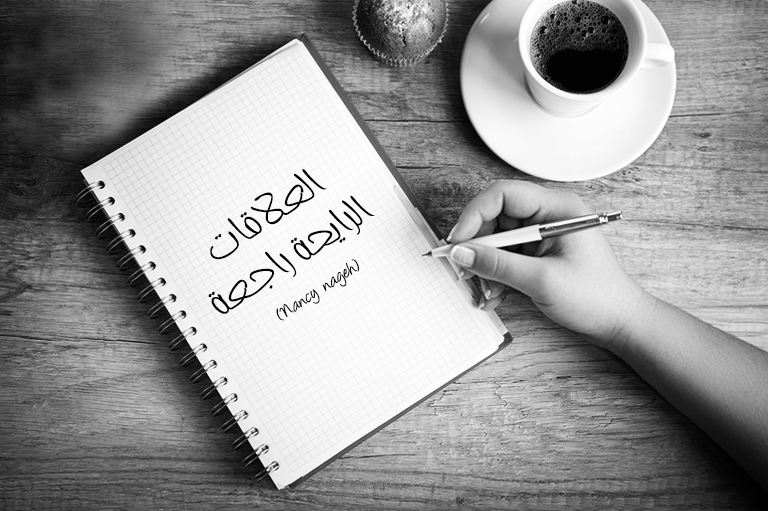 العلاقات
الرايحة راجعة
(Nancy nageh)